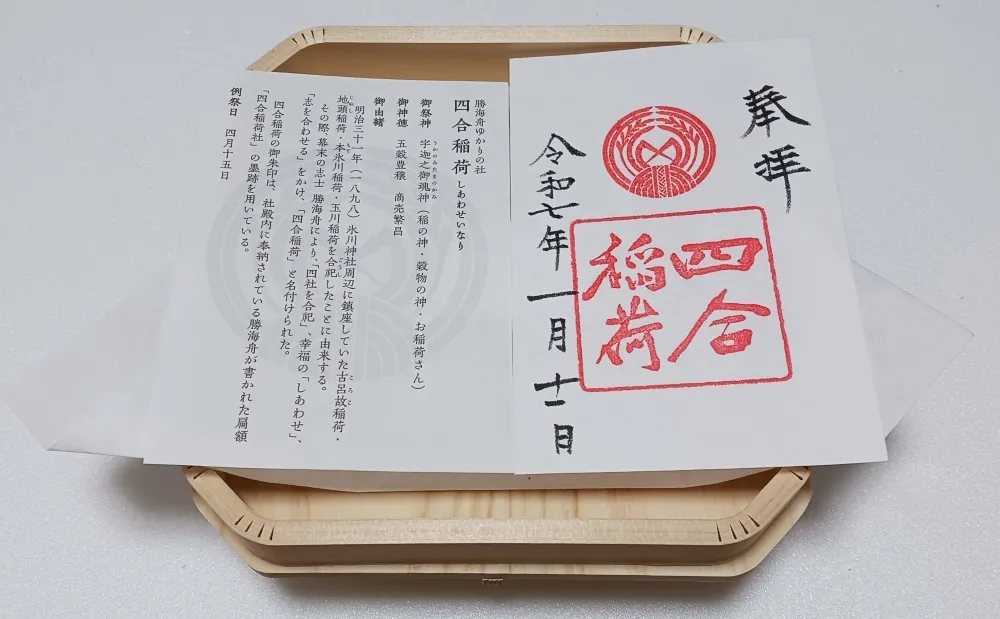 奉拝
四合
稲荷
令和七年一月十一日
勝海舟ゆかりの社
四合稲荷 しあわせいなり
御祭神 宇迦之御魂神（稲の神・穀物の神・お稲荷さん）
うかのみたまのかみ
御神徳 五穀豊穣 商売繁昌
御由緒
明治三十一年（一八九八）氷川神社周辺に鎮座していた古呂故稲荷・
ころこ
地頭稲荷・本氷川稲荷・玉川稲荷を合祀したことに由来する。
じぬし
ごうし
その際、幕末の志士 勝海舟により、「四社を合祀」、幸福の「しあわせ」、
「志を合わせる」をかけ、「四合稲荷」と名付けられた。
四合稲荷の御朱印は、社殿内に奉納されている勝海舟が書かれた扁額
「四合稲荷社」の墨跡を用いている。
例祭日 四月十五日